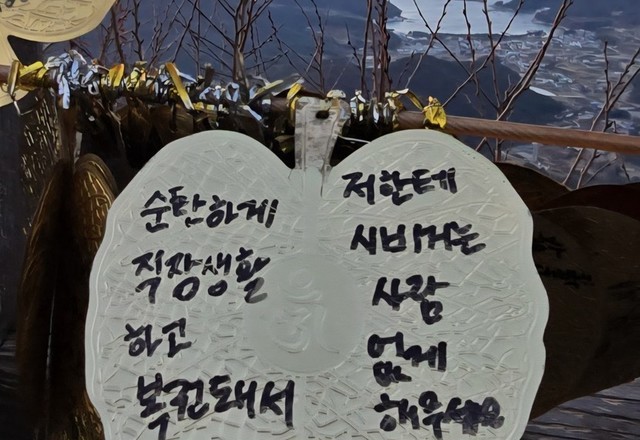 순탄하게
직장생활
하고
복권돼서
저한테
시비거는
사람
없게
해주세요